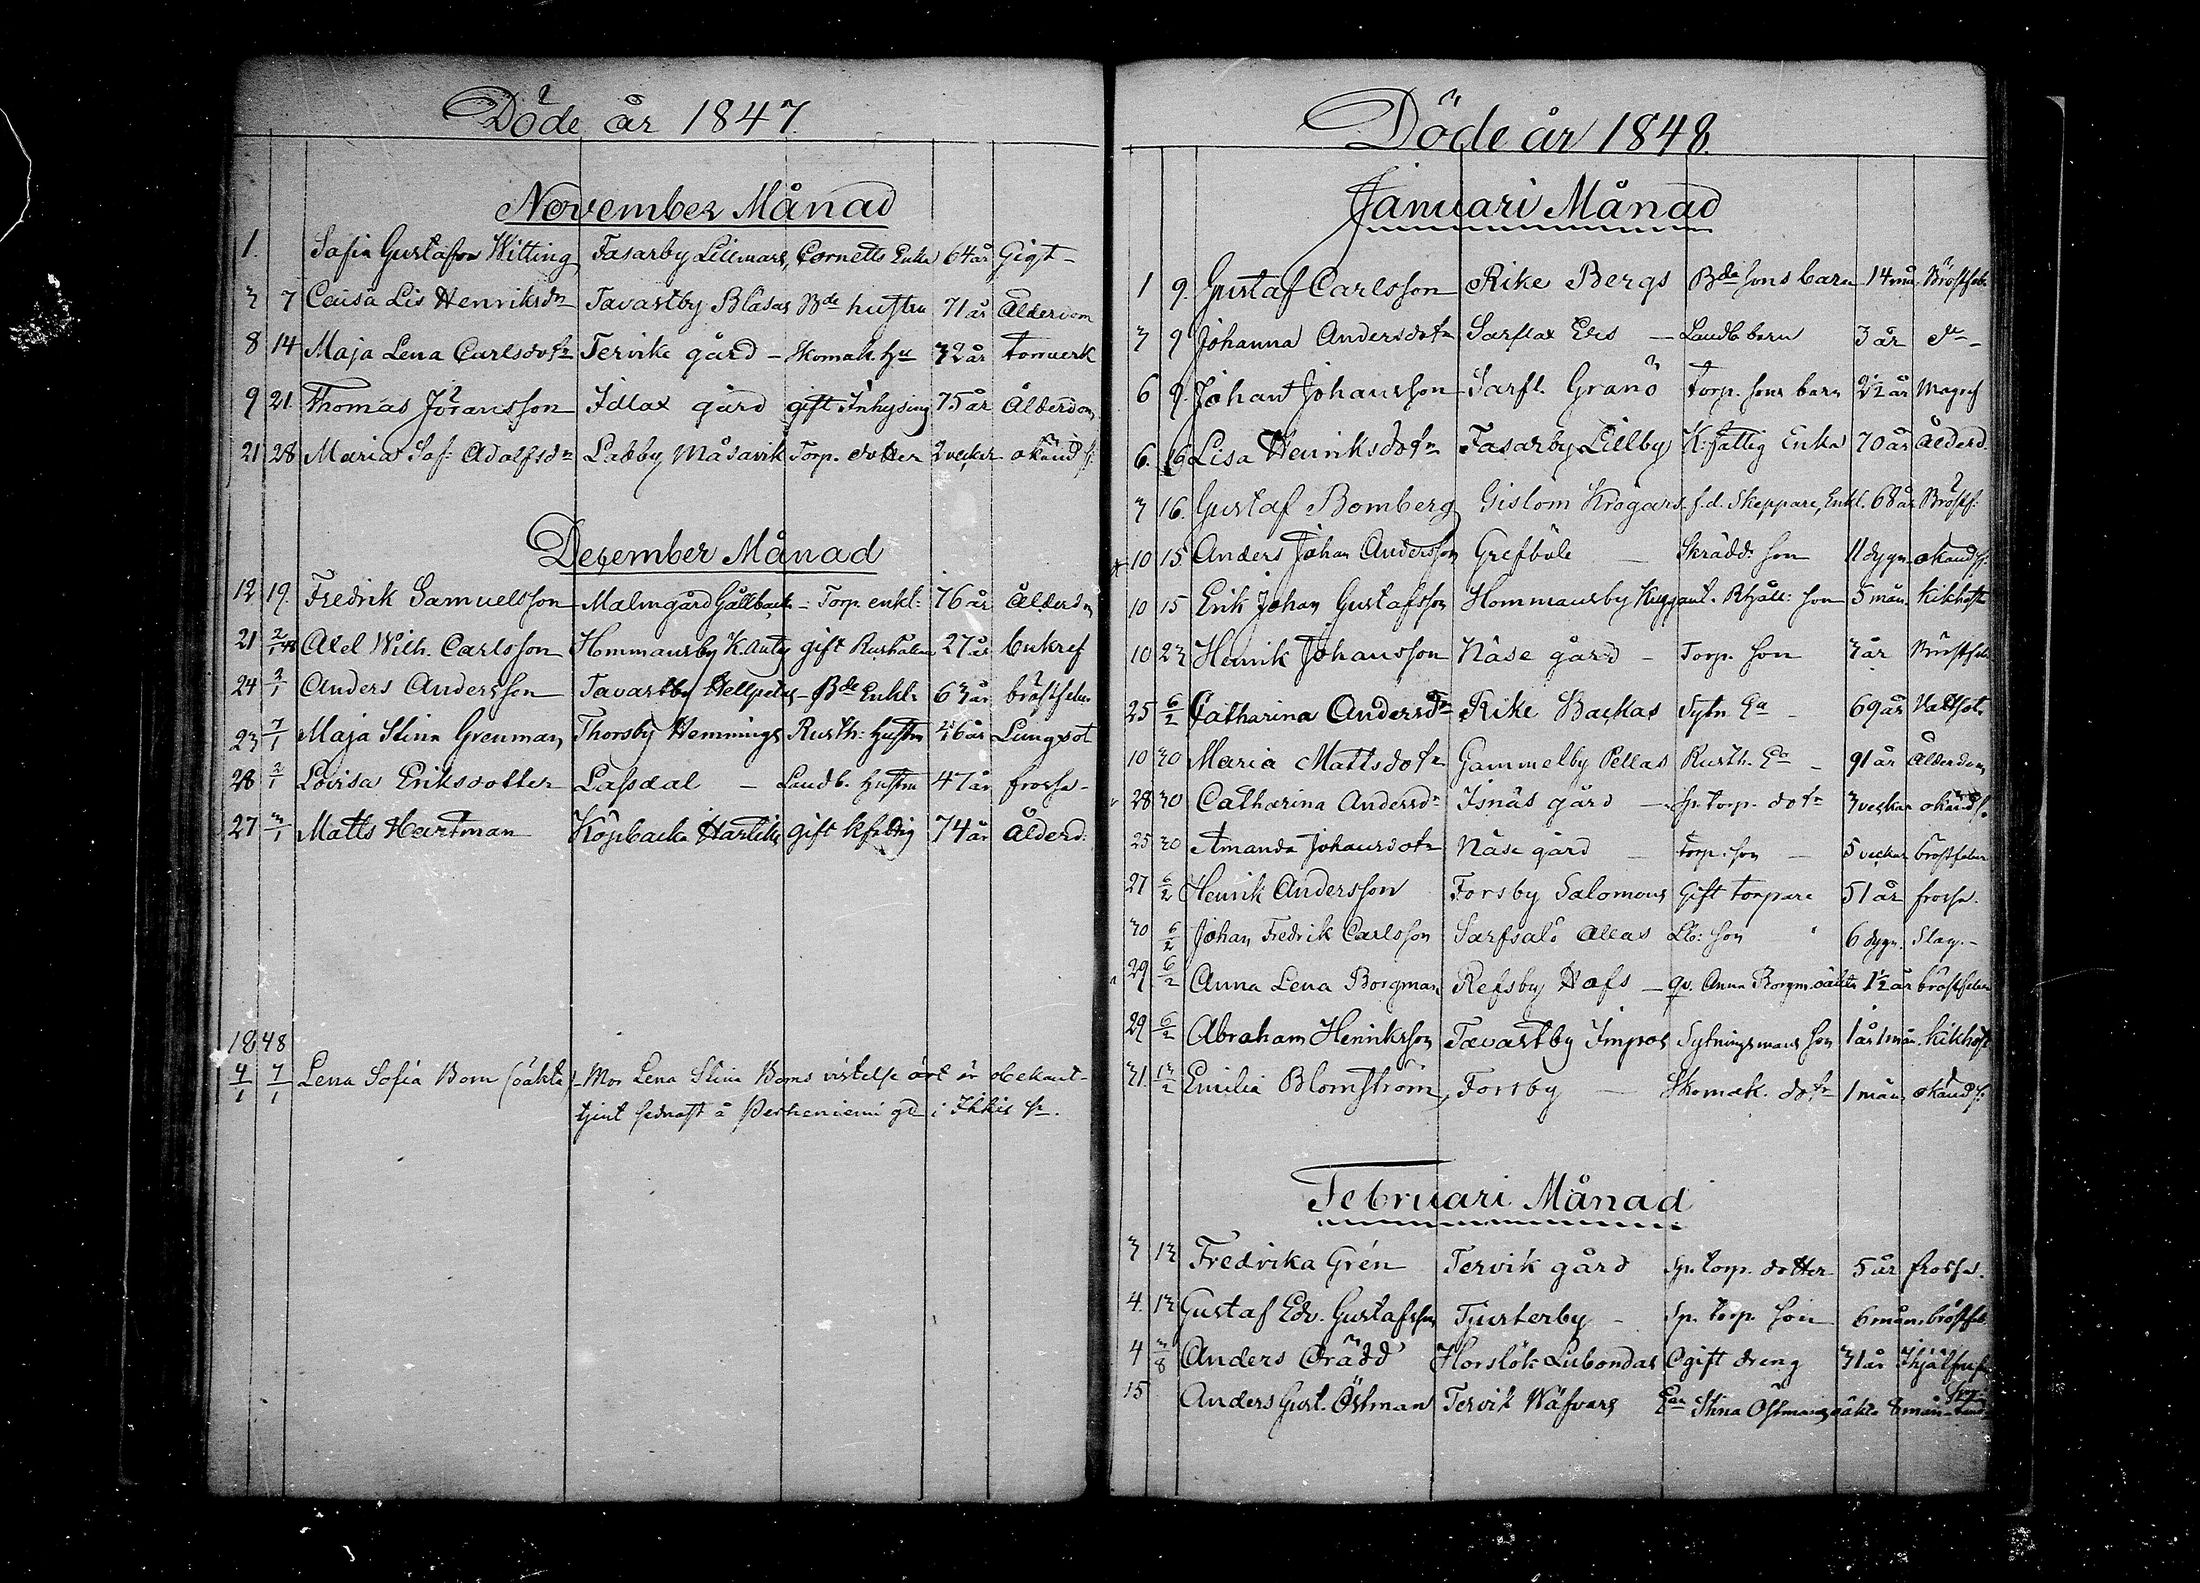 Döde år 1847.
November Månad
1. Sofia Gustafson Witting Fasarby Lillmars, Cornetts Enka 64 år Gigt -
3 7 Caisa Lis Henriksdr Tavastby Blåsas Bde hustru 71 år Ålderdom
8 14 Maja Lena Carlsdotr Tervike gård - Skomak. Hu 32 år torrverk
9 21 Thomas Joransson Idlax gård gift Inhysing 75 år Ålderdom
21 28 Maria Sof: Adolfsdr Labby Måsavik Torp. dotter 2 veckor okänd s:
December Månad
12 19. Fredrik Samuelsson Malmgård Gållback - Torp. enkl: 76 år Ålderdom
21 2/1 48 Axel Wilh. Carlsson Hommansby K. Ants gift Rusthållare 27 år bukref
24 2/1 Anders Andersson Tavastby Hellpetas - Bde Enkl: 63 år bröstfeber
23 7/1 Maja Stina Grenman Thorsby Hemmings Rusth: Hustru 46 år Lungsot
28 2/1 Lovisa Eriksdotter Lassdal - Landb. Hustru 47 år frossa -
27 3/1 Matts Hartman Köpbacka Harliks gift kfattig 74 år Ålderd.
1848
4/1 7/1 Lena Sofia Bom (oäkta) - Mor Lena Stina Boms vistelse ort är obekant -
tjent sednast å Perheniemi gd i Ihkis sn.
Döde år 1848.
Januari Månad
1 9. Gustaf Carlsson Rike Bergs Bde sons barn 14 mån Bröstfeb.
3 9 Johanna Andersdotr Sarflax Eers - Landb. barn 3 år do -
6 9. Johan Johansson Sarfl. Granö Torp. sons barn 2 1/2 år Magref
6. 16 Lisa Henriksdotr Fasarby Lillby K: fattig Enka 70 år Ålderd.
7 16. Gustaf Bomberg Gislom Krogars f.d. Skeppare, Enkl. 68 år Bröstf:
10 15. Anders Johan Andersson Grefböle - Skrädd. son 11 dygn okänd s:
10 15 Erik Johan Gustafsson Hommansby Kuggant. Rhåll: son 5 mån. kikhosta
10 23 Henrik Johansson Näse gård - Torp. son 3 år Bröstfeb.
25 6/2 Catharina Andersdr Rike Backas Sytn Ea - 69 år Vattsot.
10 30 Maria Mattsdotr Gammelby Pellas Rusth. Ea - 91 år Ålderdom
28 30 Catharina Andersdr Isnäs gård - Sp. torp. dotr 3 veckor okänd s.
25 30 Amanda Johansdotr Näse gård - torp. son - 5 veckor bröstfeber
27 6/2 Henrik Andersson Forsby Salomons Gift torpare 51 år frossa.
30 6/2 Johan Fredrik Carlsson Sarfsalö Allas Lb: son 6 dygn. Slag. -
29 6/2 Anna Lena Borgman Refsby Hofs - qv. Anna Borgm. oäkta 1 1/2 år bröstfeber
29 6/2 Abraham Henriksson Tavastby Impos Sytningsmans son 1 år 1 mån. kikhost
31. 13/2 Emilia Blomström, Forsby - Skomak. dotr 1 mån okänd s:
Februari Månad
3 13 Fredrika Grén Tervik gård Sp. torp. dotter 5 år frossa.
4. 13 Gustaf Edv. Gustafsson Tjusterby - Sp. torp. son 6 mån. bröstfeb.
4 3/8 Anders Orädd Horslök Lubondas Ogift dreng 31 år Ihjälfrusen
15 Anders Gust. Östman Tervik Wäfvars Ean Stina Östmans oäkta 8 mån